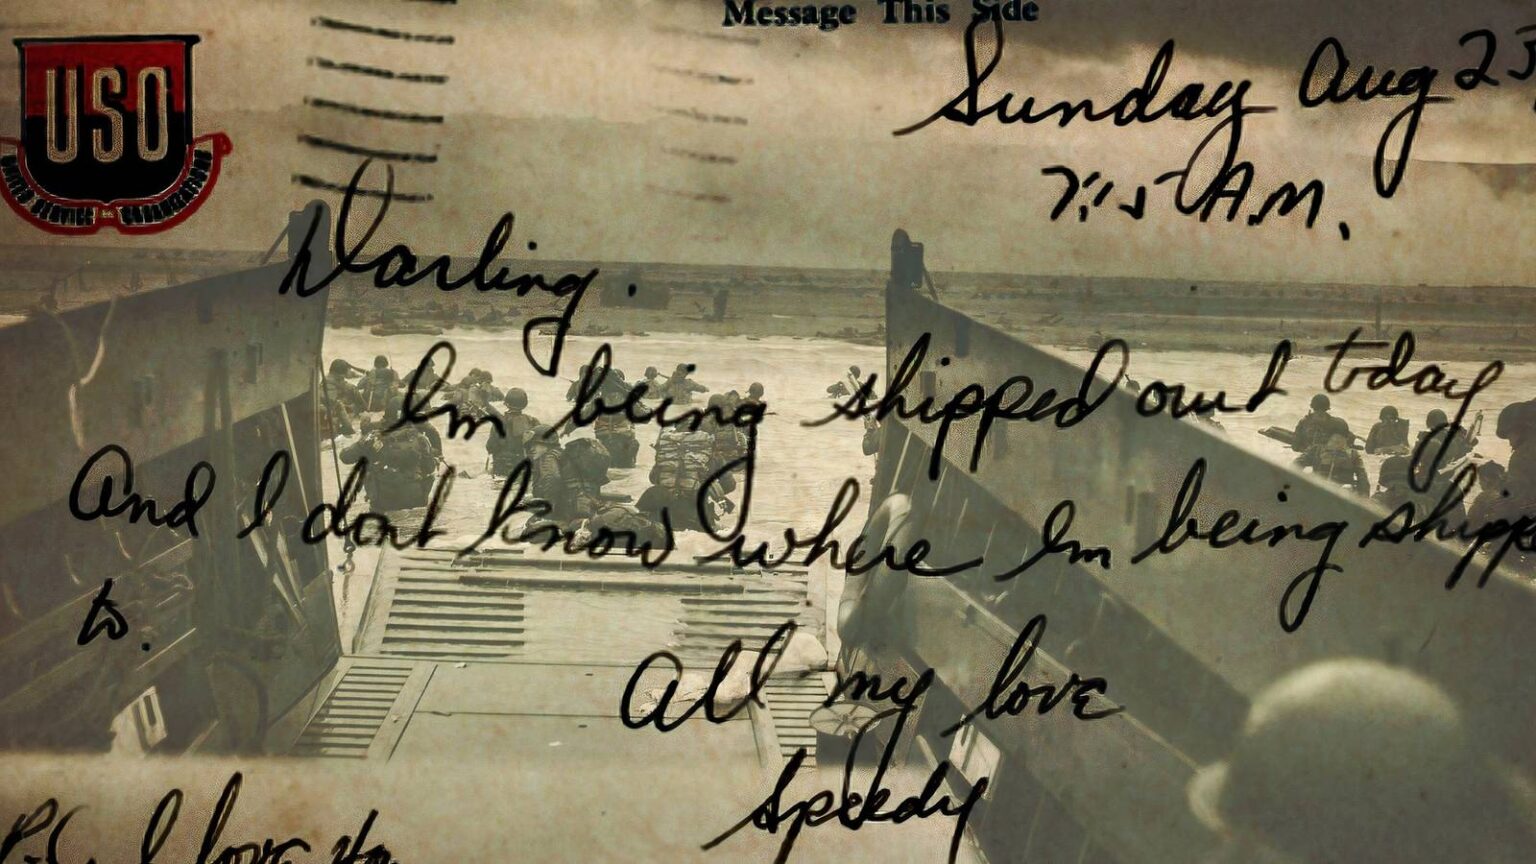 Message This Side
USO
UNITED SERVICE ORGANIZATIONS
Sunday Aug 23
7:15 A.M.
Darling.
Im being shipped out today
And I dont know where Im being shippe
to.
All my love
Speedy
P.S. I love yo